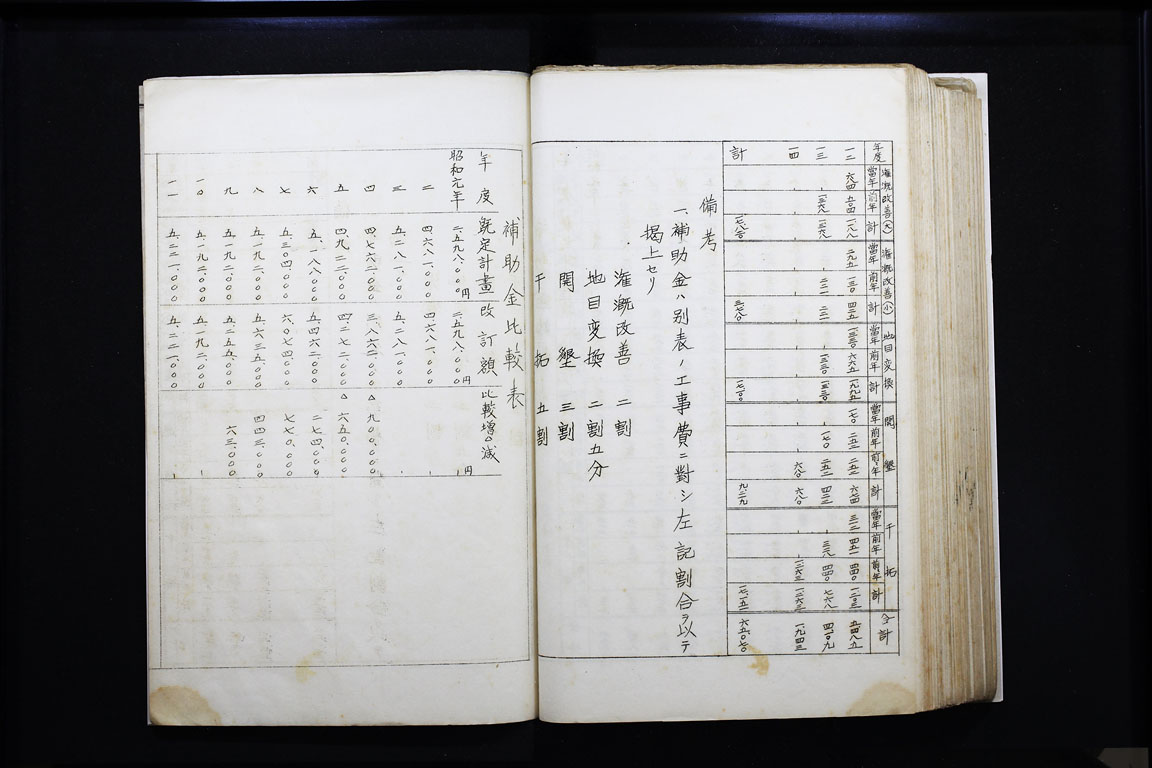 灌漑改善(大) 灌漑改善(小) 地目変換 開墾 干拓
年度 當年 前年 計 當年 前年 計 當年 前年 計 當年 前年 前年 計 當年 前年 前年 計 合計
一二 六八四 五〇四 一、一八八 二九五 一三〇 四二五 一、三三〇 六六五 一、九九五 一七〇 二五二 二五二 六七四 三一二 四五一 四四〇 一、二〇三 五、四八五
一三 、 一、三六八 一、三六八 、 二二一 二二一 、 一、三三〇 一、三三〇 、 一七〇 二五二 四二二 、 三二八 四四〇 七六八 四、一〇九
一四 、 、 、 、 、 、 、 、 、 、 、 六八〇 六八〇 、 、 一、二六三 一、二六三 一、九四三
計 一七、八二〇 三、七八〇 一七、一〇〇 九、二一九 一七、一五一 六五、〇七〇
備考
一、補助金ハ別表ノ工事費ニ對シ左記割合ヲ以テ
掲上セリ
灌漑改善 二割
地目変換 二割五分
開墾 三割
干拓 五割
補助金比較表
年度 既定計畫 改訂額 比較増△減
昭和元年 二、五九八、〇〇〇円 二、五九八、〇〇〇円 、円
二 四、六八一、〇〇〇 四、六八一、〇〇〇 、
三 五、二八一、〇〇〇 五、二八一、〇〇〇 、
四 四、七六二、〇〇〇 三、八六二、〇〇〇 △ 九〇〇、〇〇〇
五 四、九二二、〇〇〇 四、二七二、〇〇〇 △ 六五〇、〇〇〇
六 五、一八八、〇〇〇 五、四六二、〇〇〇 二七四、〇〇〇
七 五、三〇四、〇〇〇 六、〇七四、〇〇〇 七七〇、〇〇〇
八 五、一九二、〇〇〇 五、六三五、〇〇〇 四四三、〇〇〇
九 五、一九二、〇〇〇 五、二五五、〇〇〇 六三、〇〇〇
一〇 五、一九二、〇〇〇 五、一九二、〇〇〇 、
一一 五、二二一、〇〇〇 五、二二一、〇〇〇 、